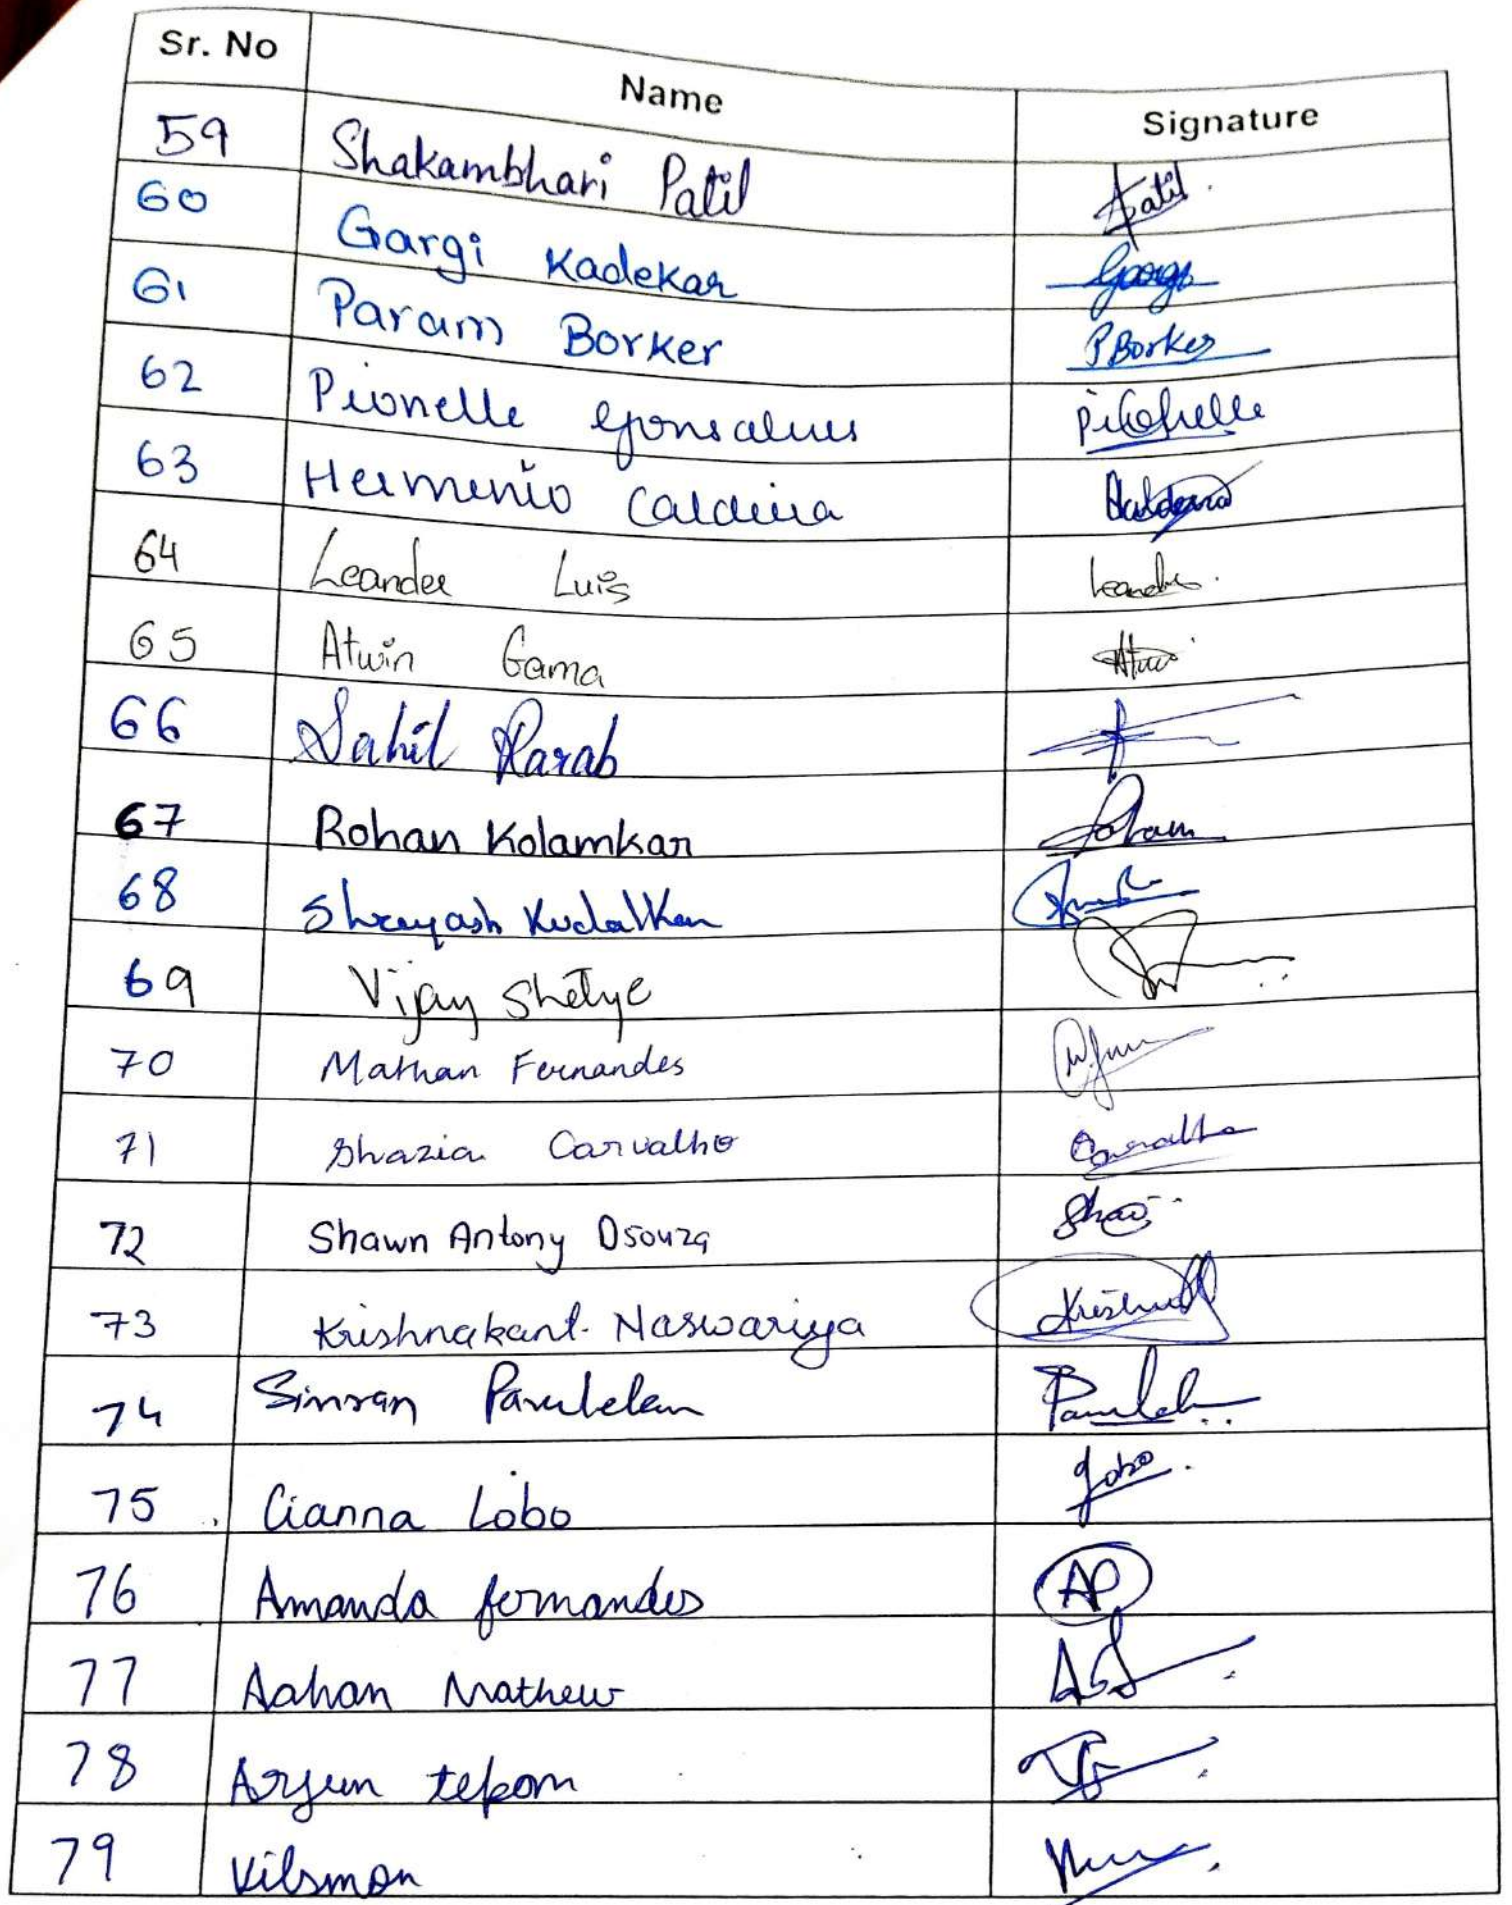 Sr. No Name Signature
59 Shakambhari Patil Patil
60 Gargi Kadekar Gargi
61 Param Borker P Borker
62 Pionelle Gonsalves
63 Herminio Caldeira Caldeira
64 Leander Luis Leander
65 Atwin Gama Atwin
66 Sahil Parab
67 Rohan Kolamkar Roham
68 Shreyash Kudalkar
69 Vijay Shetye
70 Mathan Fernandes
71 Shazia Carvalho Carvalho
72 Shawn Antony Dsouza Shaw
73 Krishnakant Naswariya
74 Simran Parulekar
75 Cianna Lobo Lobo
76 Amanda fernandes AP
77 Aahan Mathew
78 Arjun
79 Vilsman